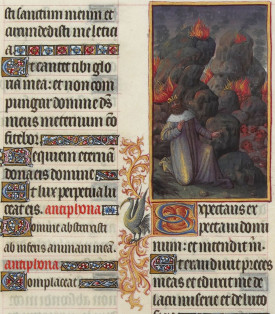 sti sanctum meum et
circundedisti me letici
a
Ut cantet tibi glo
ria mea: et non com
pungar domine deus
meus in eternum con
fitebor
Requiem eternam
dona eis domine
Et lux perpetua lu
ceat eis. antiphona
Domine abstraxisti
ab inferis animam meam.
antiphona
Complaceat
Expectans ex
pectavi domi
num: et intendit mi
Et exaudivit preces
meas et eduxit me de
lacu miserie et de luto